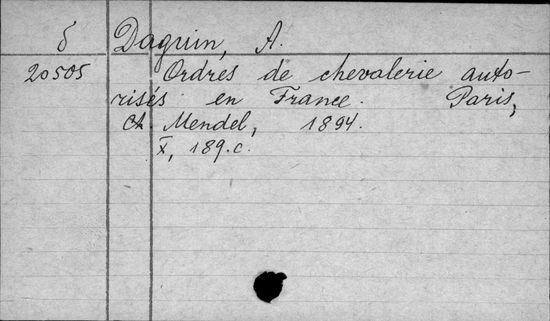 б Daguin, A.
20505 Ordres de chevalerie auto-
risés en France. Paris,
Ch. Mendel, 1894.
X, 189.c.